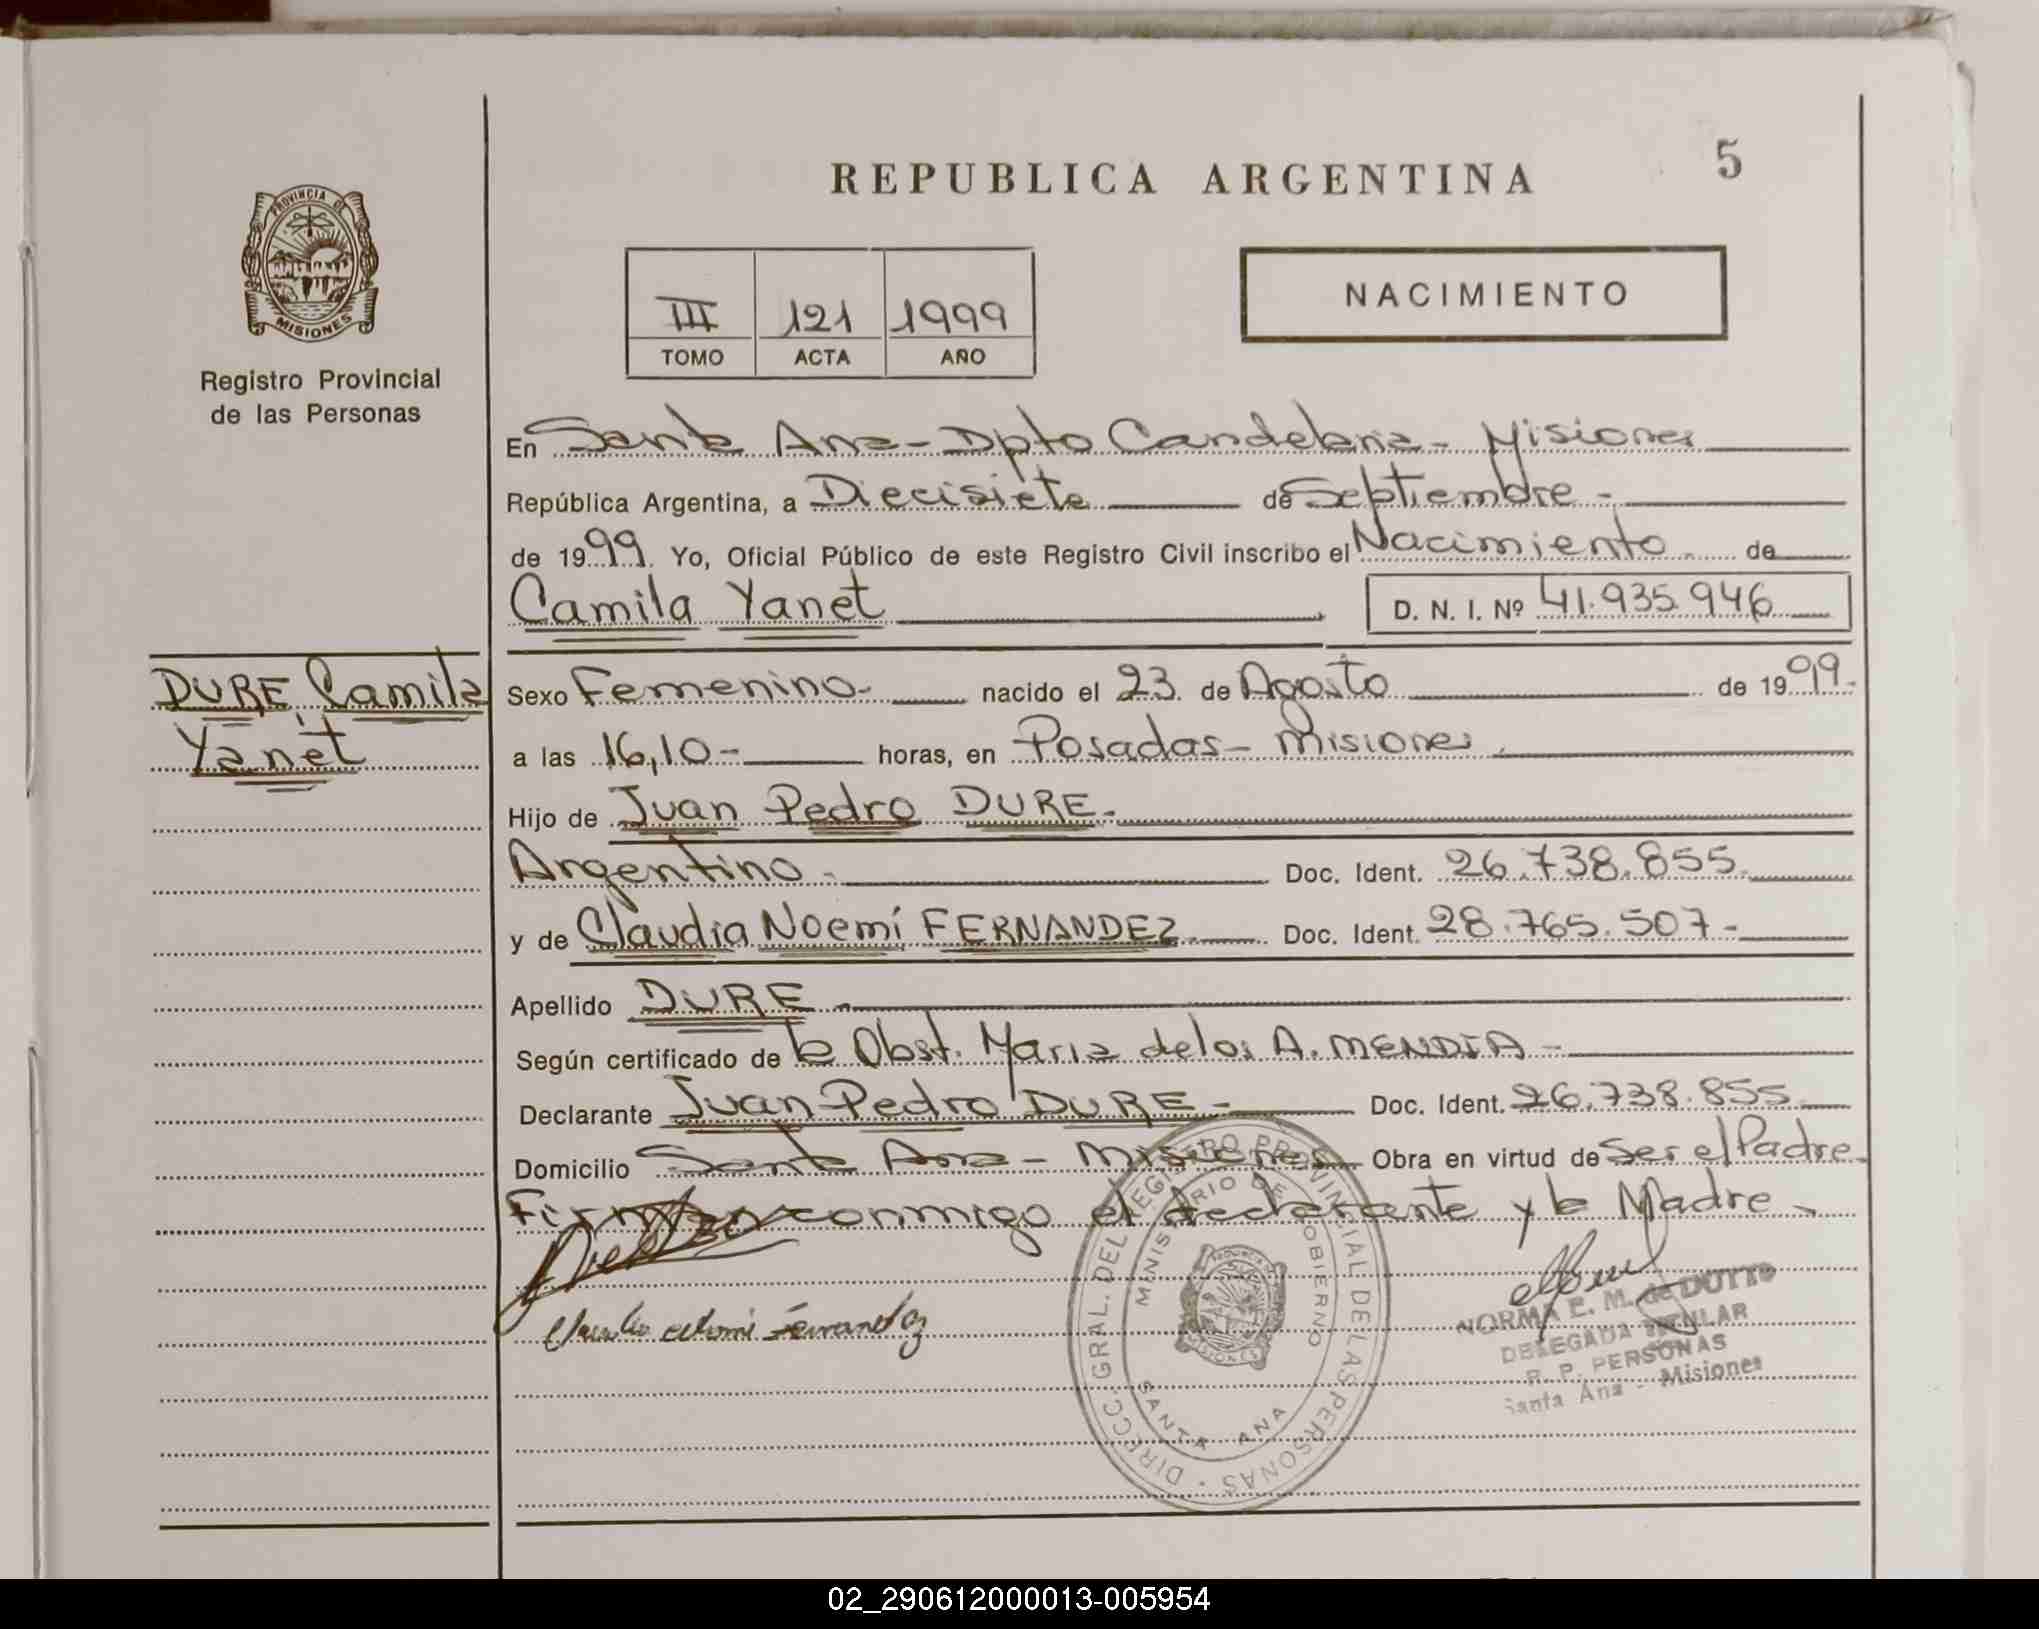 5
REPUBLICA ARGENTINA
PROVINCIA DE
MISIONES
Registro Provincial
de las Personas
III 121 1999
TOMO ACTA AÑO
NACIMIENTO
En Santa Ana - Dpto Candelaria - Misiones
República Argentina, a Diecisiete de Septiembre -
de 1999. Yo, Oficial Público de este Registro Civil inscribo el Nacimiento de
Camila Yanet D. N. I. Nº 41.935.946
DURE, Camila
Yanet
Sexo Femenino - nacido el 23 de Agosto de 1999 -
a las 16,10 - horas, en Posadas - Misiones
Hijo de Juan Pedro DURE -
Argentino - Doc. Ident. 26.738.855
y de Claudia Noemí FERNANDEZ Doc. Ident. 28.765.507 -
Apellido DURE -
Según certificado de la Obst. Maria de los A. MENDIA -
Declarante Juan Pedro DURE - Doc. Ident. 26.738.855
Domicilio Santa Ana - Misiones Obra en virtud de Ser el Padre -
Firman conmigo el declarante y la Madre -
Claudia Noemi Fernandez
DIRECC. GRAL. DEL REGISTRO PROVINCIAL DE LAS PERSONAS
MINISTERIO DE GOBIERNO
SANTA ANA
MISIONES
NORMA E. M. de DUTTO
DELEGADA TITULAR
R. P. PERSONAS
Santa Ana - Misiones
02_290612000013-005954